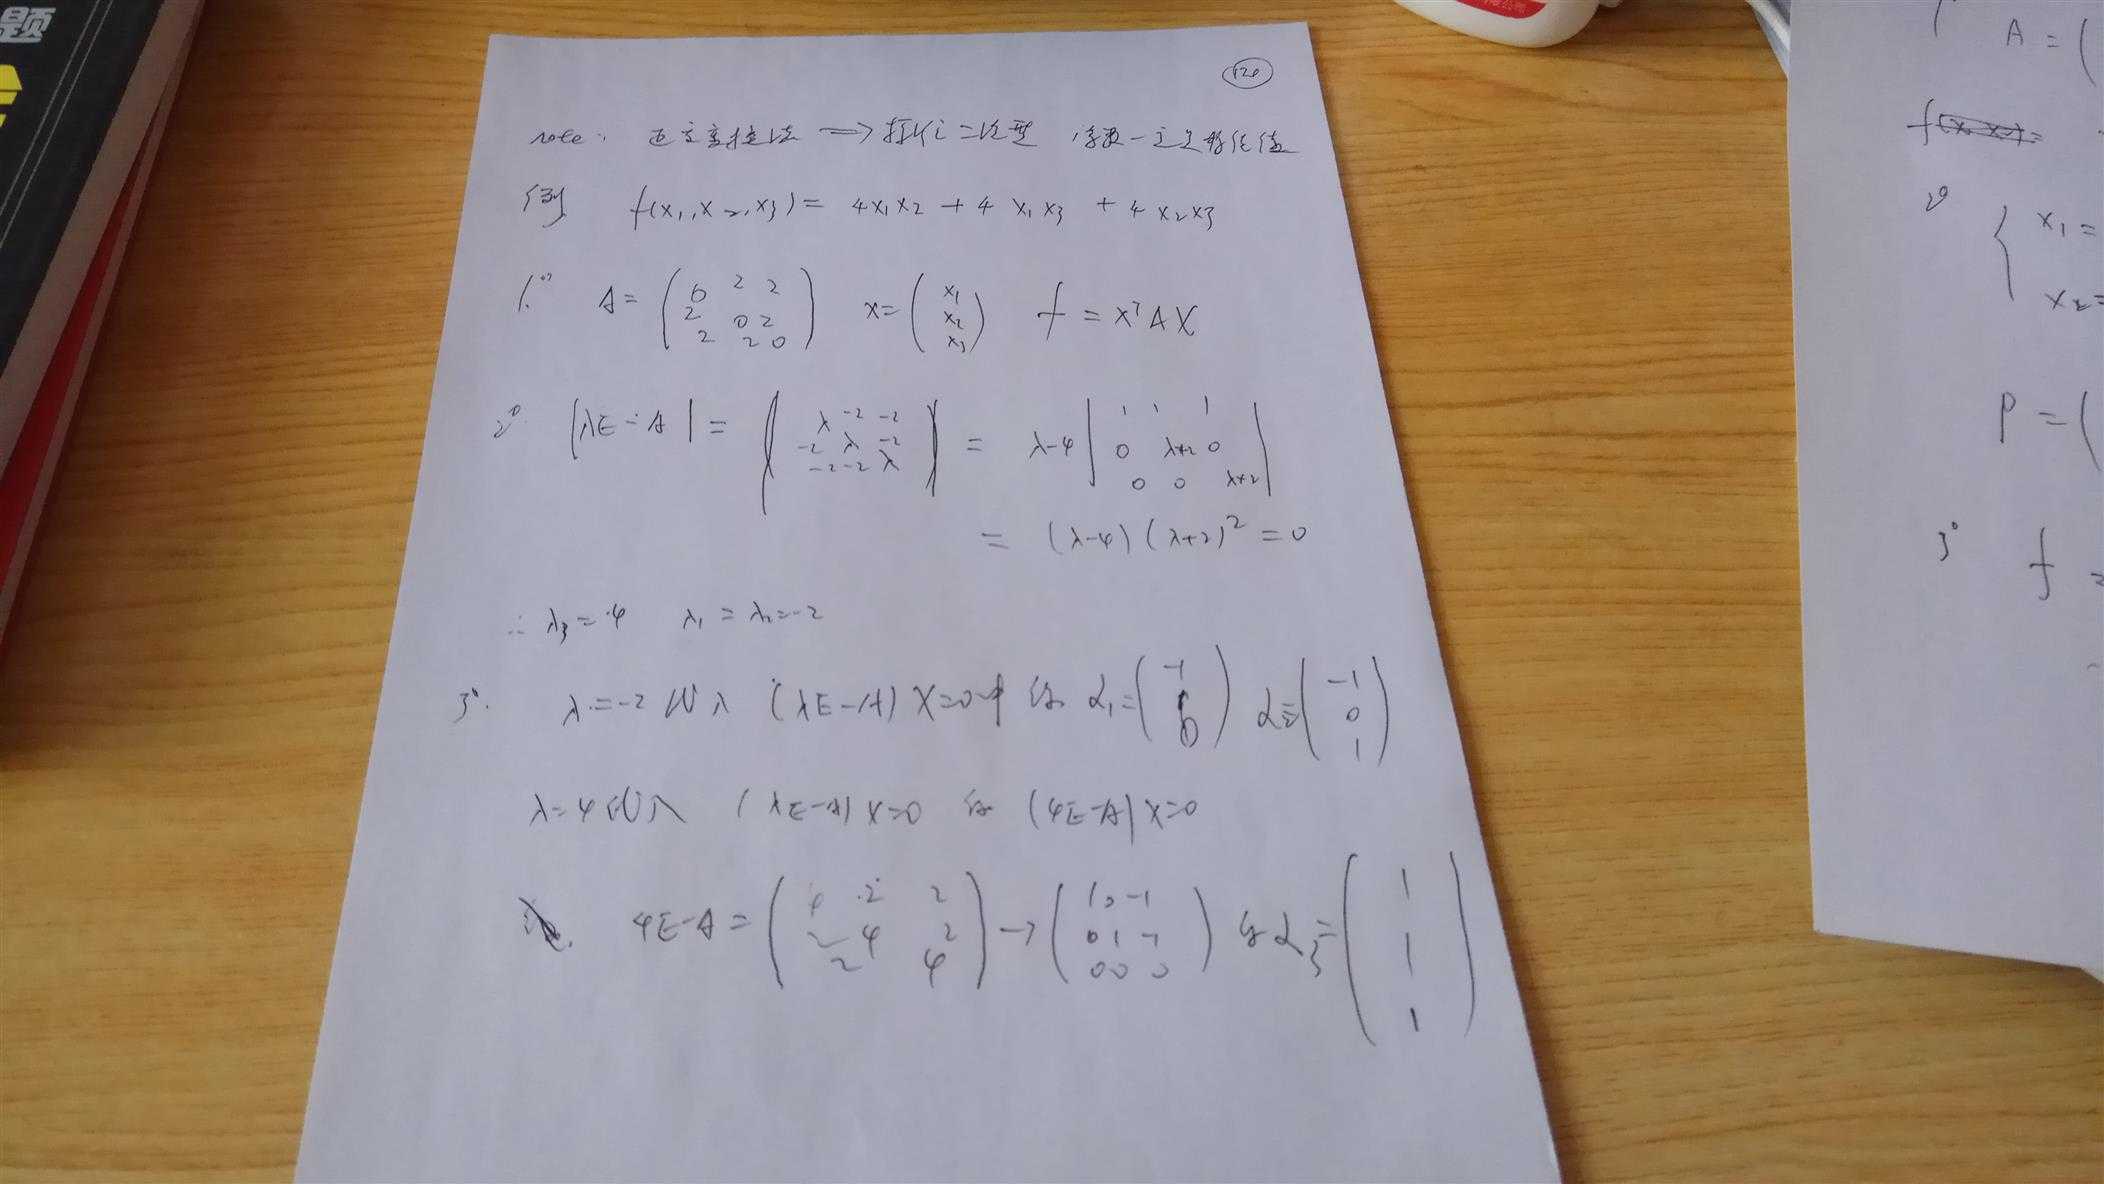 题
120
note: 正交变换法 ⟹ 标准二次型 系数一定是特征值
例 f(x₁,x₂,x₃)= 4x₁x₂ + 4 x₁x₃ + 4 x₂x₃
1° A= ( 0 2 2
2 0 2
2 2 0 ) x= ( x₁
x₂
x₃ ) f = XᵀAX
2° |λE-A| = | λ -2 -2
-2 λ -2
-2 -2 λ | = λ-4 | 1 1 1
0 λ+2 0
0 0 λ+2 |
= (λ-4)(λ+2)² = 0
∴ λ₃=4 λ₁ = λ₂=-2
3°. λ=-2 代入 (λE-A) X=0 得 α₁= ( -1
1
0 ) α₂= ( -1
0
1 )
λ=4 代入 (λE-A) X=0 得 (4E-A) X=0
4E-A= ( 4 -2 2
2 4 2
2 4 ) → ( 1 0 -1
0 1 -1
0 0 0 ) 得 α₃= ( 1
1
1 )
A = (
2° { x₁ =
x₂=
P = (
3° f =